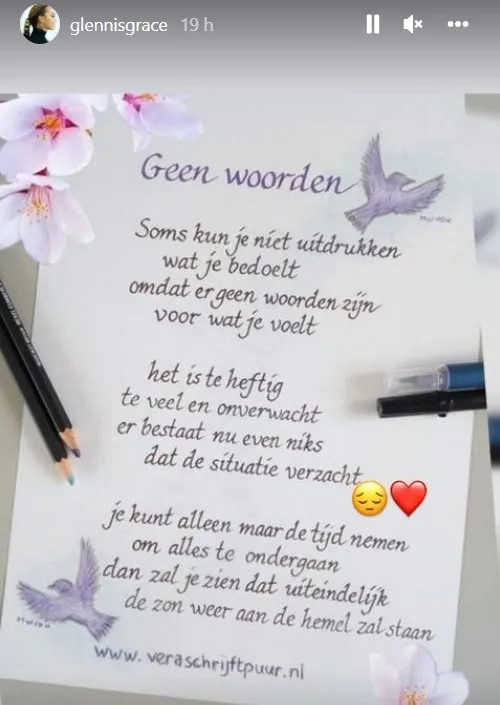 glennisgrace 19 h
Geen woorden
Soms kun je niet uitdrukken
wat je bedoelt
omdat er geen woorden zijn
voor wat je voelt
het is te heftig
te veel en onverwacht
er bestaat nu even niks
dat de situatie verzacht
je kunt alleen maar de tijd nemen
om alles te ondergaan
dan zal je zien dat uiteindelijk
de zon weer aan de hemel zal staan
www.veraschrijftpuur.nl